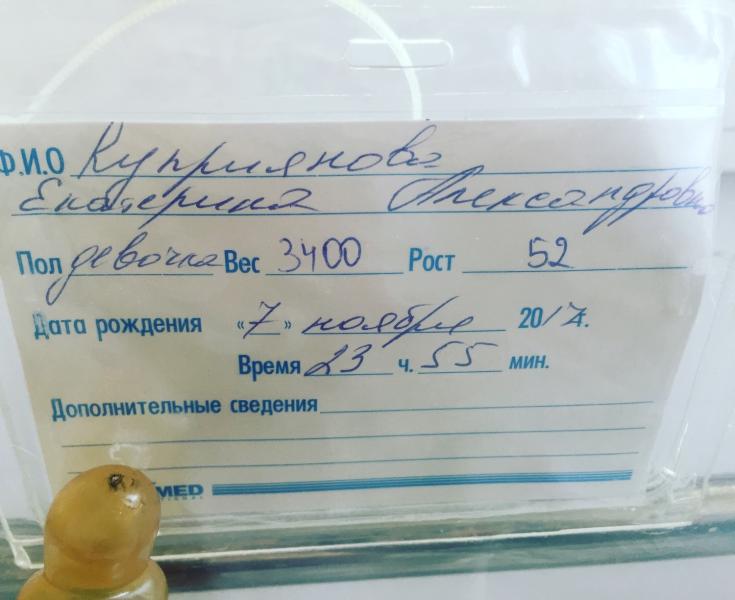 Ф.И.О Куприянова
Екатерина Александровна
Пол девочка Вес 3400 Рост 52
Дата рождения «7» ноября 2017г.
Время 23 ч. 55 мин.
Дополнительные сведения
MED